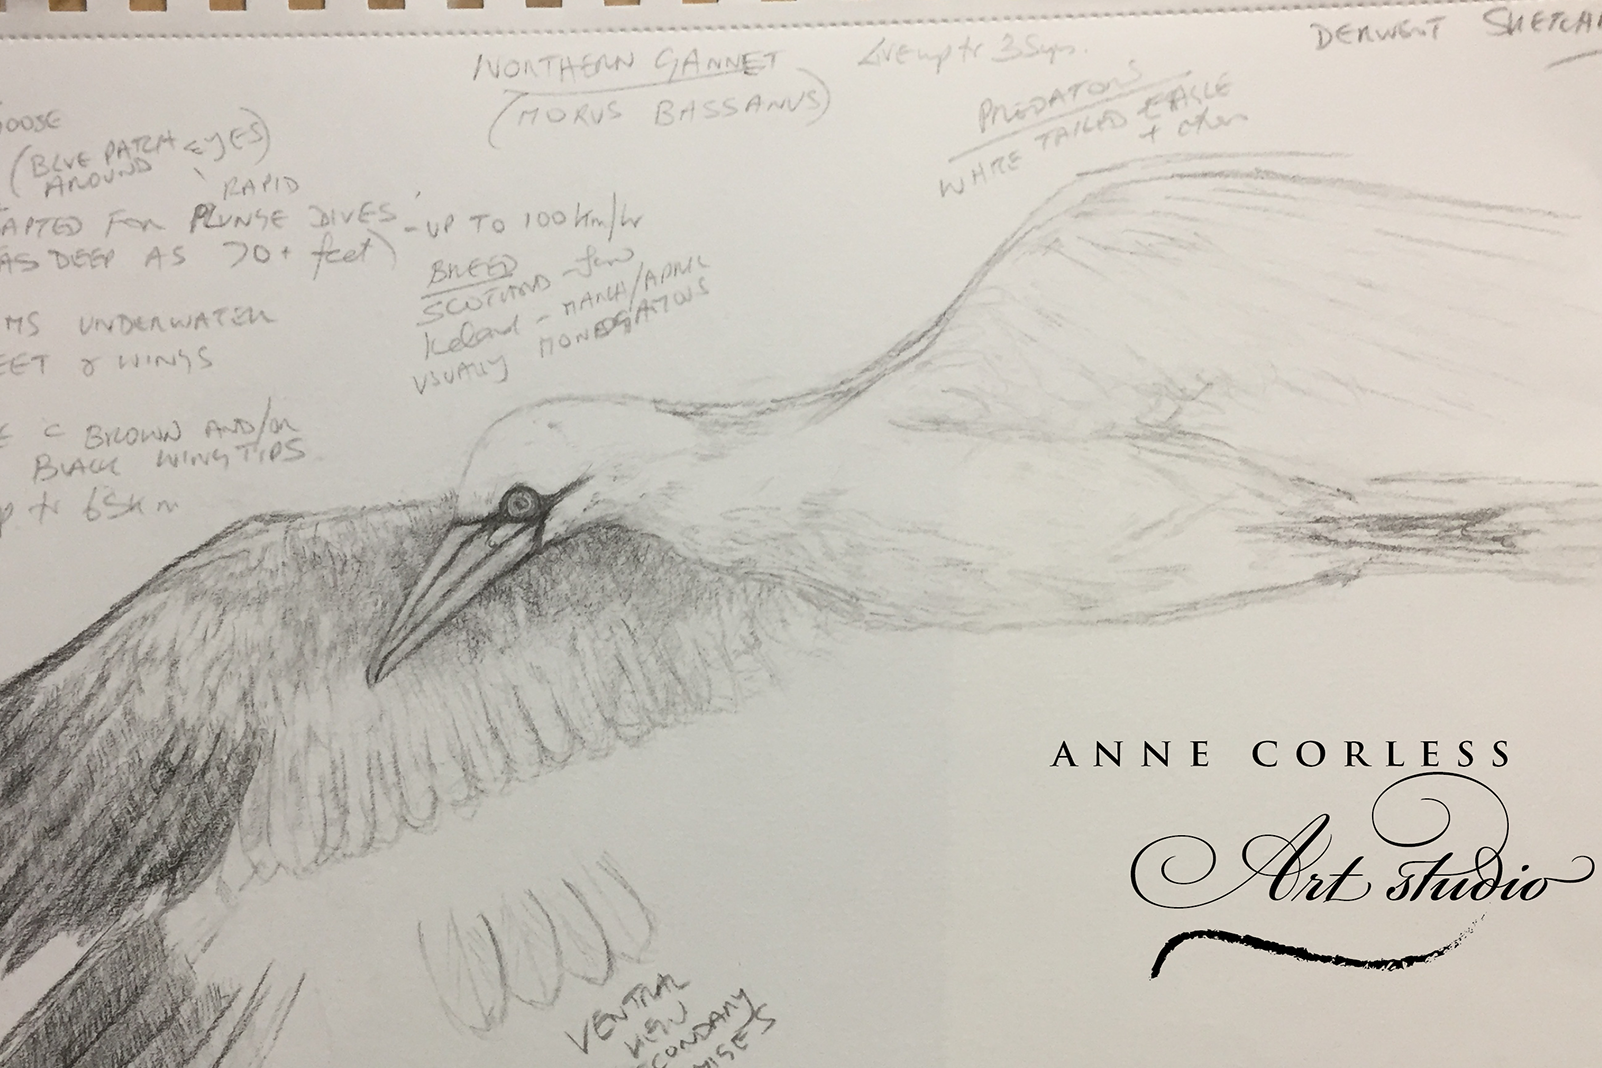 NORTHERN GANNET
(MORUS BASSANUS)
Live up to 35yrs.
DERWENT
PREDATORS
WHITE TAILED EAGLE
+ other
OOSE
(BLUE PATCH EYES)
AROUND
RAPID
APTED FOR PLUNGE DIVES - UP TO 100 km/hr
AS DEEP AS 70+ feet)
MS UNDERWATER
EET & WINGS
BREED
SCOTLAND - few
Iceland - MARCH/APRIL
USUALLY MONOGAMOUS
E C BROWN AND/OR
BLACK WING TIPS
p to 65km
VENTRAL
VIEW
ECONDARY
ANNE CORLESS
Art studio